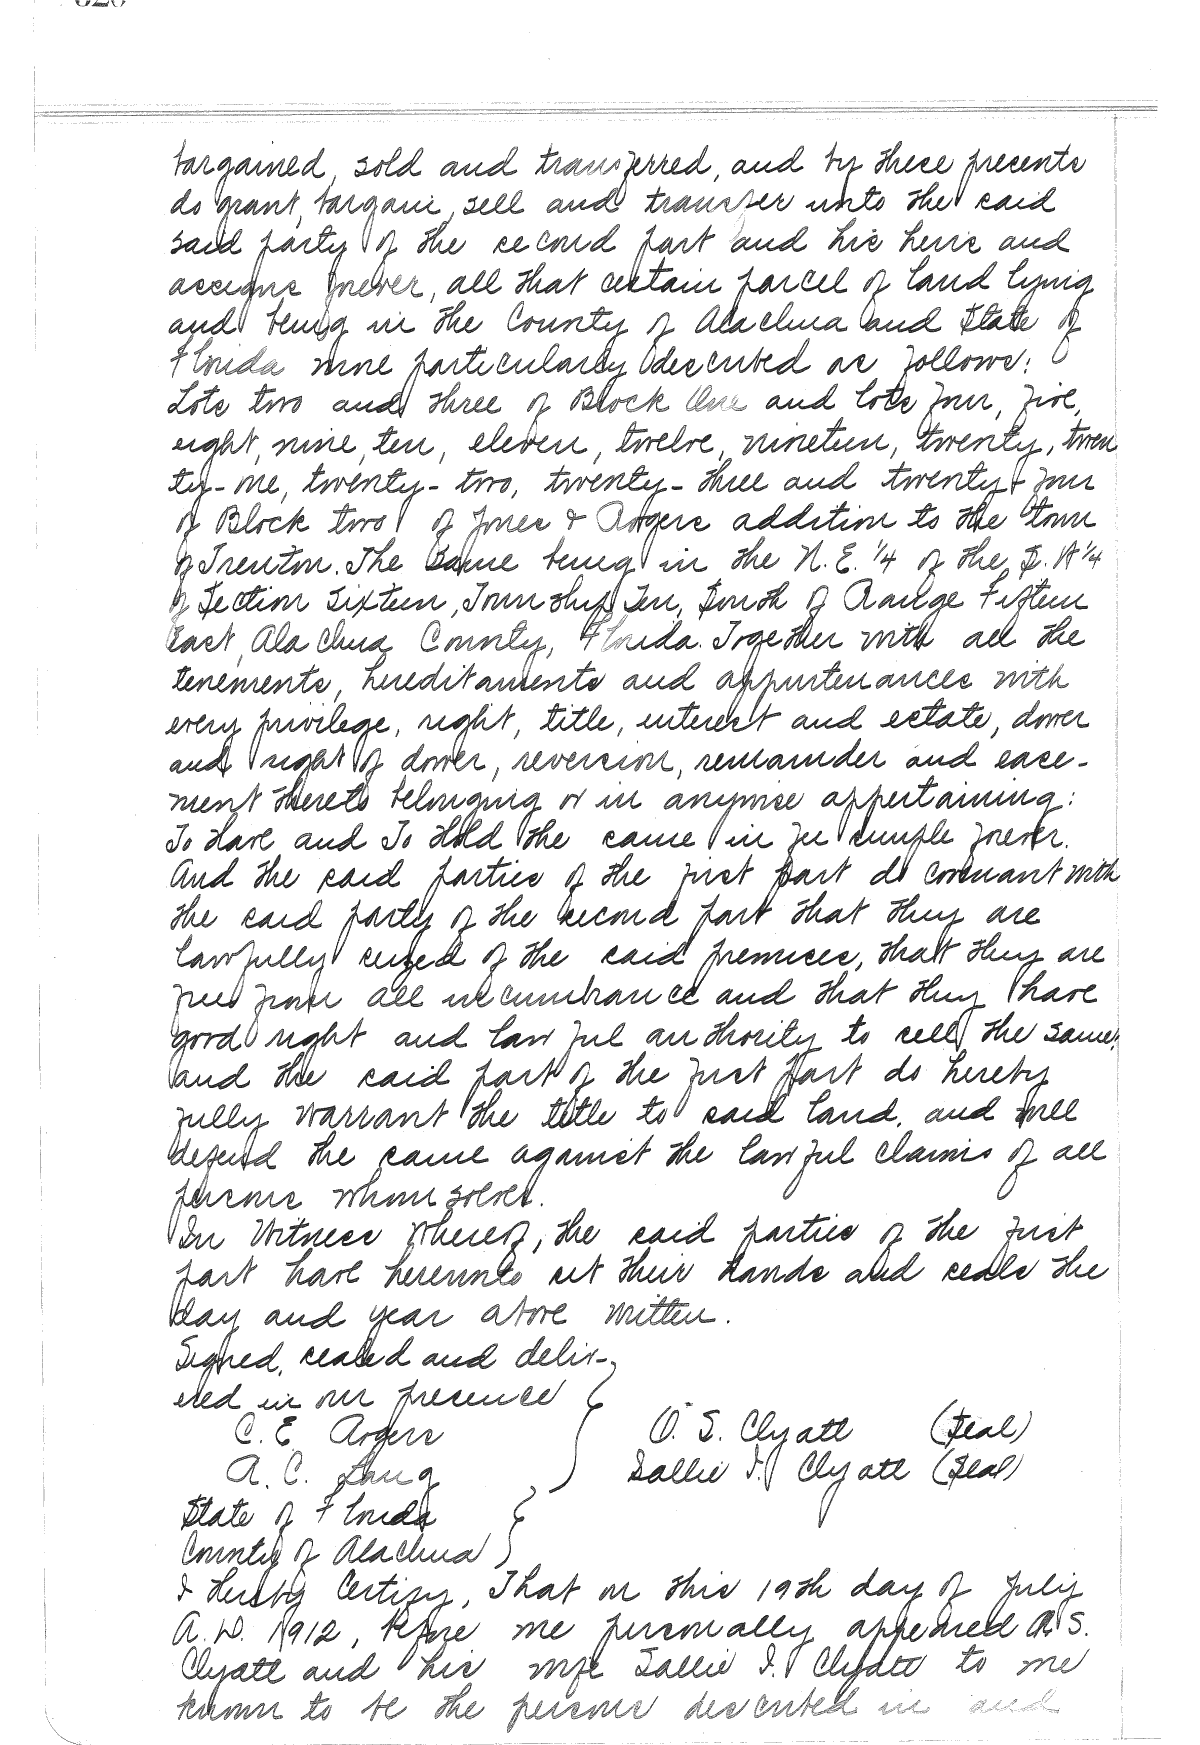 bargained, sold and transferred, and by these presents
do grant, bargain, sell and transfer unto the said
said party of the second part and his heirs and
assigns forever, all that certain parcel of land lying
and being in the County of Alachua and State of
Florida more particularly described as follows:
Lots two and three of Block One and lots four, five,
eight, nine, ten, eleven, twelve, nineteen, twenty, twen
ty-one, twenty-two, twenty-three and twenty-four
of Block two of Jones & Rogers addition to the town
of Trenton. The same being in the N.E. 1/4 of the 1/4
of Section Sixteen, Township Ten, South of Range Fifteen
East, Alachua County, Florida. Together with all the
tenements, hereditaments and appurtenances with
every privilege, right, title, interest and estate, dower
and right of dower, reversion, remainder and ease-
ment thereto belonging or in anywise appertaining:
To Have and To Hold the same in fee simple forever.
And the said parties of the first part do covenant with
the said party of the second part that they are
lawfully seized of the said premises, that they are
free from all incumbrance and that they have
good right and lawful authority to sell the same,
and the said part of the first part do hereby
fully warrant the title to said land, and will
defend the same against the lawful claims of all
persons whomsoever.
In Witness Whereof, the said parties of the first
part have hereunto set their hands and seals the
day and year above written.
Signed, sealed and deliv-
ered in our presence
C. E. Rogers O. S. Clyatt (Seal)
A. C. Sallie I. Clyatt (Seal)
State of Florida
County of Alachua
I Hereby Certify, That on this 19th day of July
A.D. 1912, before me personally appeared S.
Clyatt and his wife Sallie I. Clyatt to me
known to be the persons described in and